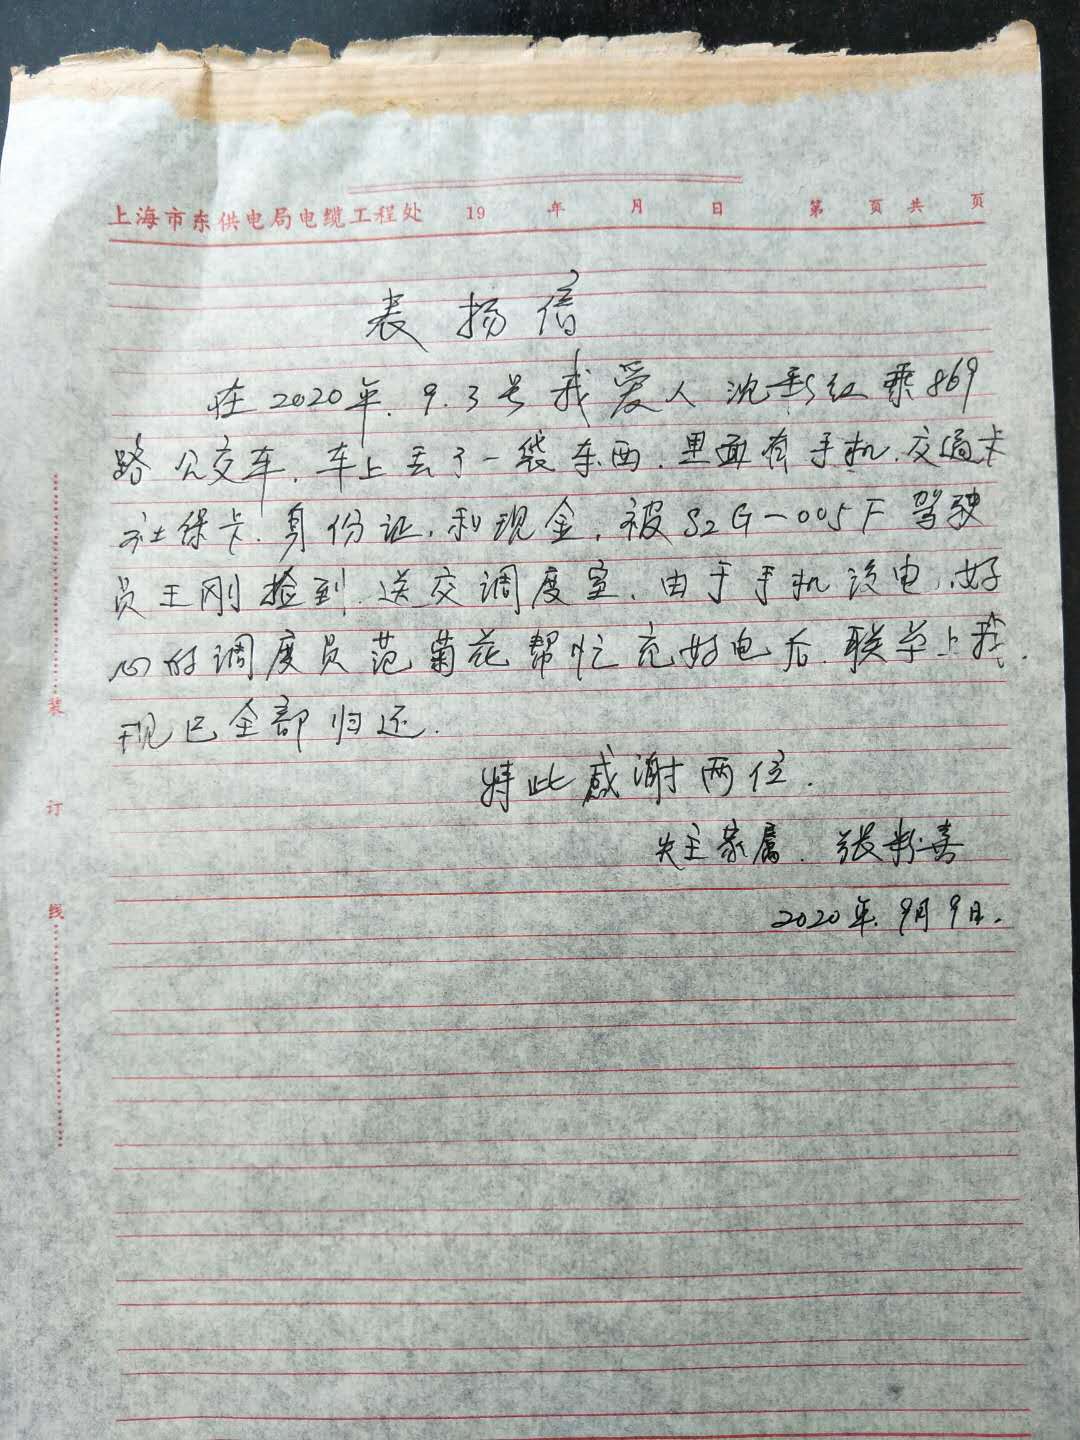 上海市东供电局电缆工程处 19 年 月 日 第 页 共 页
表扬信
在2020年.9.3号我爱人沈彩红乘869
路公交车.车上丢了一袋东西.里面有手机.交通卡
社保卡.身份证.和现金.被S2G-005F驾驶
员王刚捡到.送交调度室.由于手机没电.好
心的调度员范菊花帮忙充好电后.联系上我.
现已全部归还.
特此感谢两位.
失主家属.张善
2020年.9月9日.
装
订
线